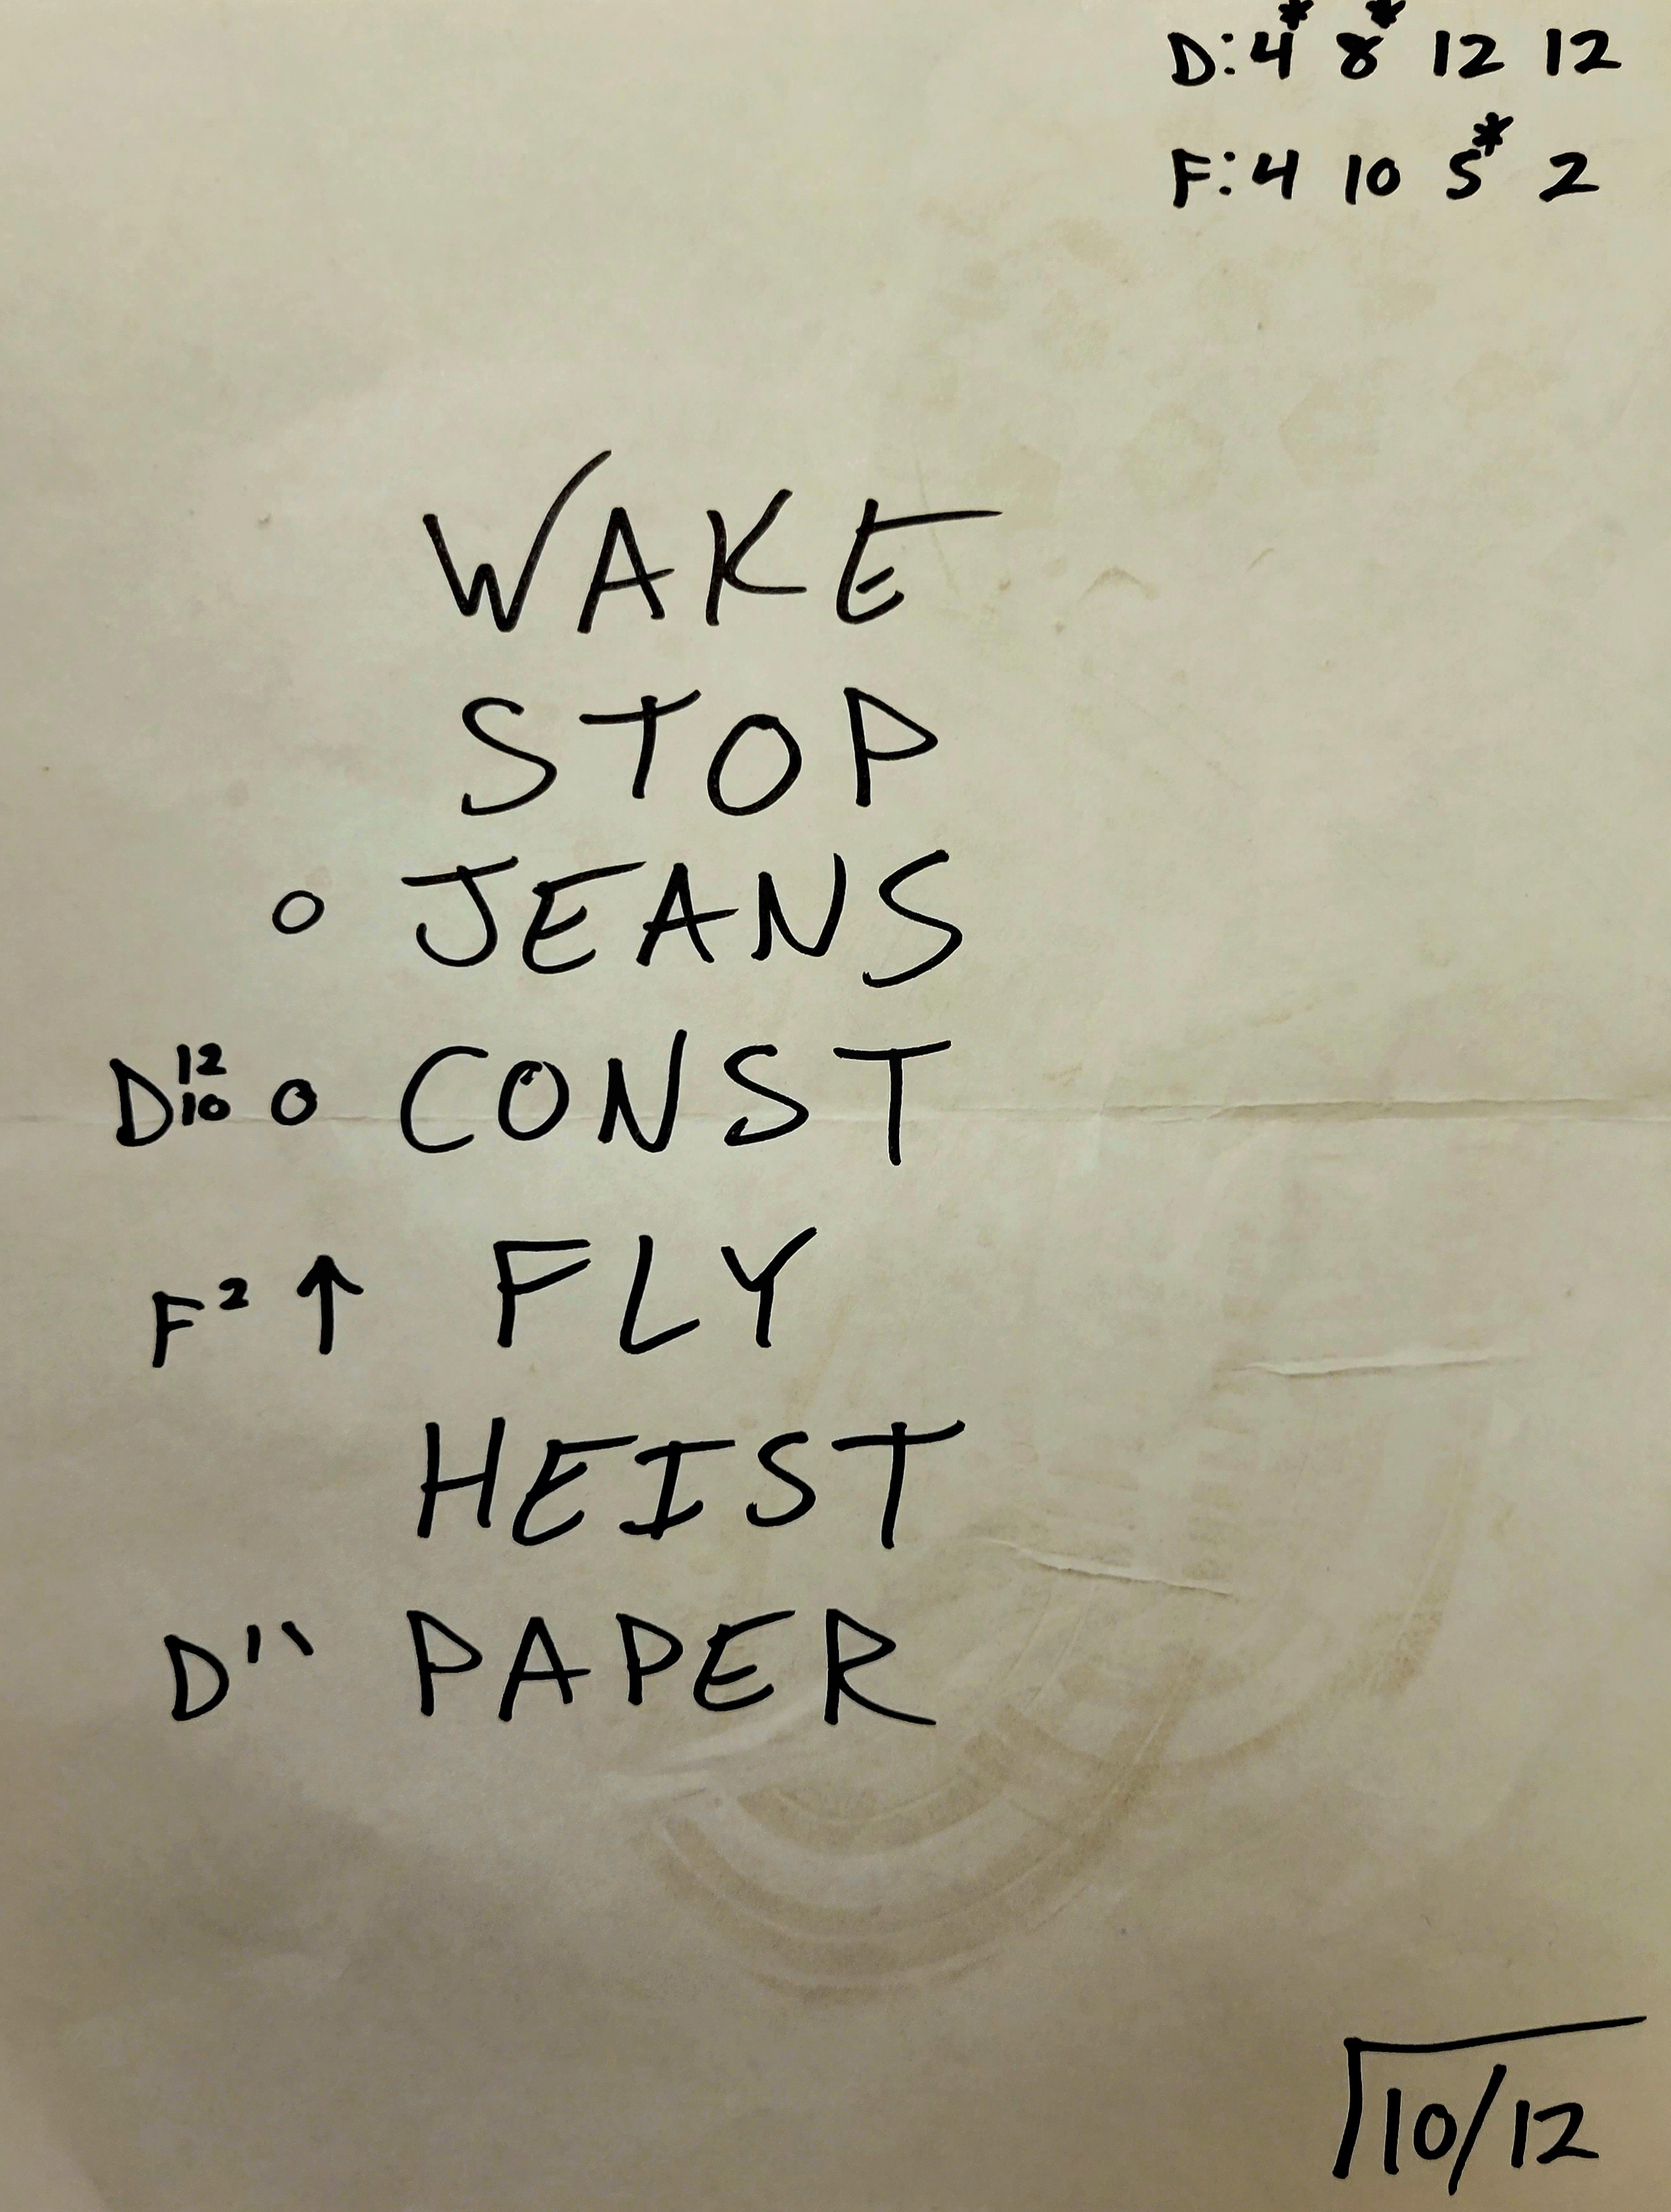 D: 4* 8* 12 12
F: 4 10 5* 2
WAKE
STOP
o JEANS
D 12 10 o CONST
F² ↑ FLY
HEIST
D" PAPER
10/12